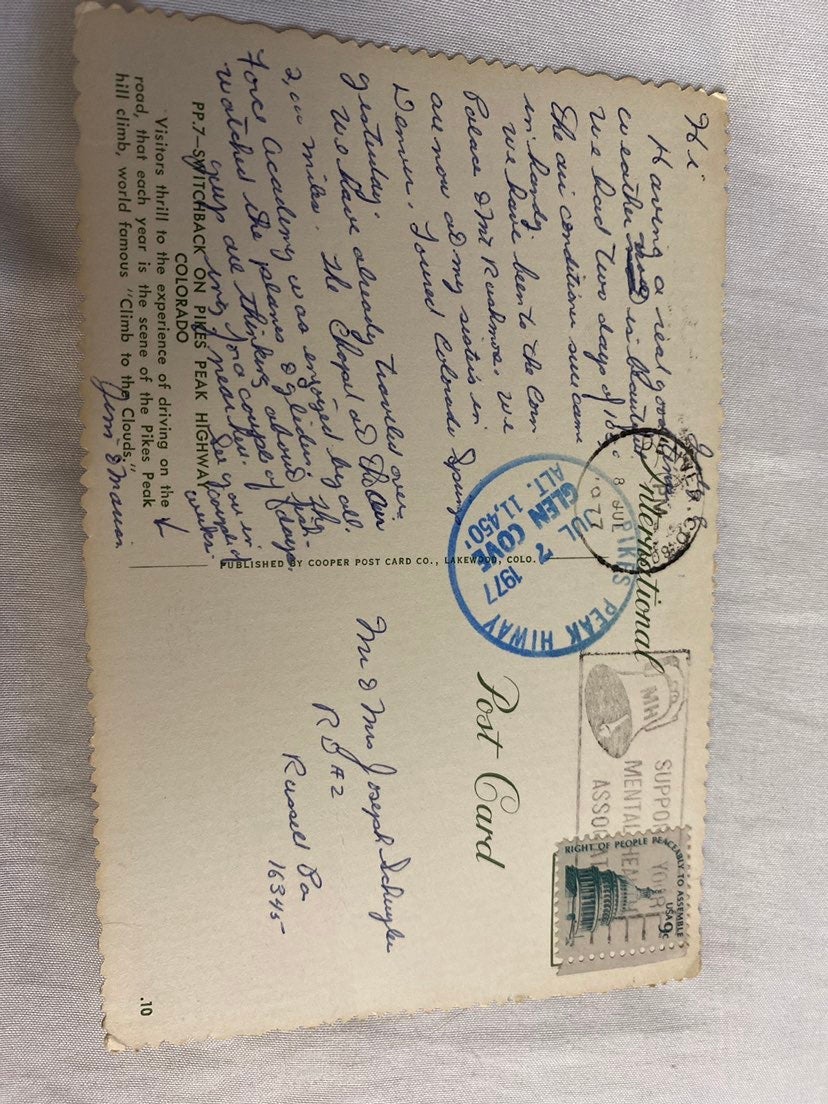 Hi
Having a real good time
weather is beautiful
We had two days of 100°
the air condition sure came
in handy.
We have been to the Corn
Palace & Mt Rushmore. We
are now at my sisters in
Denver. Toured Colorado Springs
yesterday.
We have already traveled over
2,000 miles. The Chapel at the Air
Force Academy was enjoyed by all.
watched the planes & gliders. The
are thinking about
for a couple of days
near her. See you in
couple of
weeks
Jim & Marian
PP.7—SWITCHBACK ON PIKES PEAK HIGHWAY
COLORADO
Visitors thrill to the experience of driving on the
road, that each year is the scene of the Pikes Peak
hill climb, world famous "Climb to the Clouds."
PUBLISHED BY COOPER POST CARD CO., LAKEWOOD, COLO.
International
Post Card
PIKES PEAK HIWAY
JUL
7
1977
GLEN COVE
ALT. 11,450'
8 JUL
MH
SUPPORT YOUR
MENTAL HEALTH
ASSOCIATION
RIGHT OF PEOPLE PEACEABLY TO ASSEMBLE
USA 9c
Mr & Mrs Joseph Schuyler
RD #2
Russell Pa
16345
.10